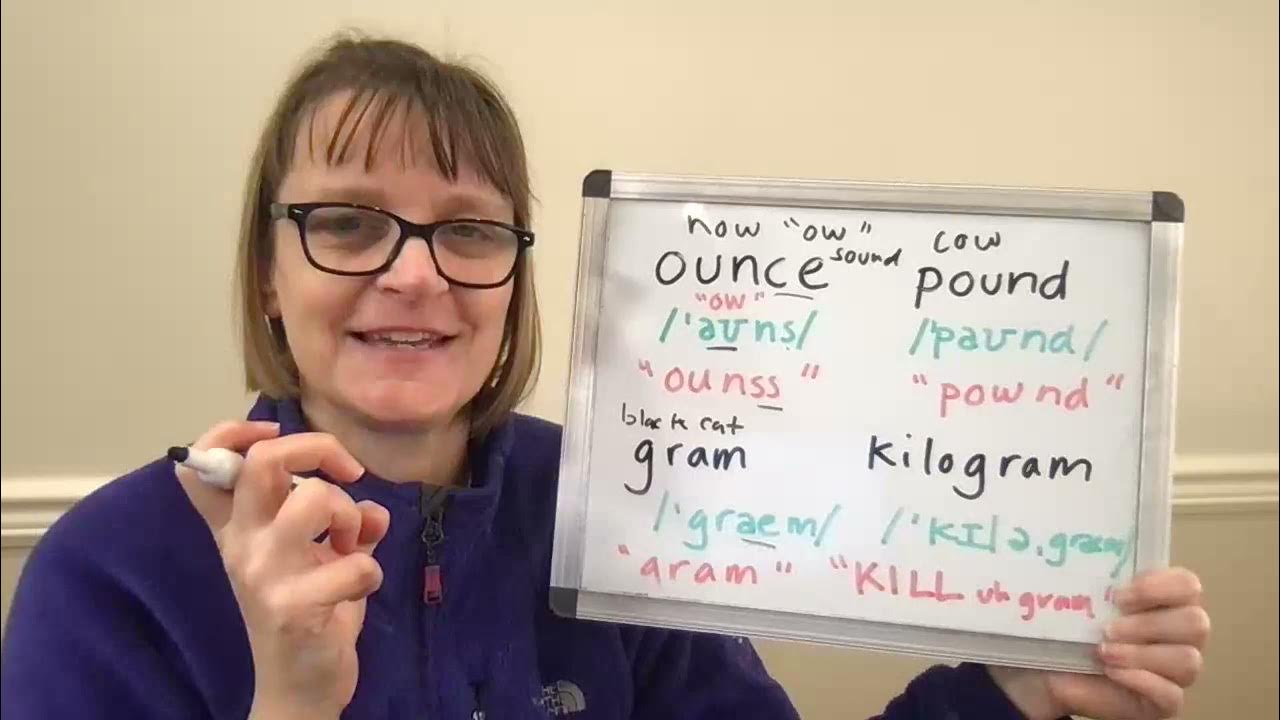 now "ow" cow
ounce sound pound
"ow"
/ˈəʊns/ /ˈpaʊnd/
"ounss" "pownd"
black cat
gram kilogram
/ˈgræm/ /ˈkɪlə.græm/
"gram" "KILL uh gram"
THE
NORTH
FACE